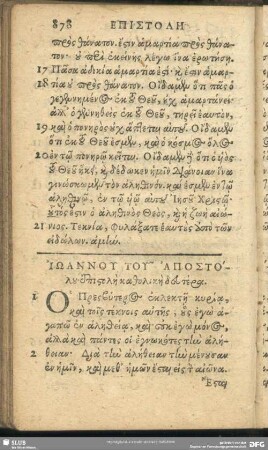 878 ΕΠΙΣΤΟΛΗ
πρὸς θάνατον. ἔστιν ἁμαρτία πρὸς θάνα-
τον· οὐ περὶ ἐκείνης λέγω ἵνα ἐρωτήσῃ.
17 Πᾶσα ἀδικία ἁμαρτία ἐστί· κ̀ ἔστιν ἁμαρ-
18 τία οὐ πρὸς θάνατον. Οἴδαμεν ὅτι πᾶς ὁ
γεγεννημένος ἐκ τοῦ Θεοῦ, οὐχ ἁμαρτάνει·
ἀλλ' ὁ γεννηθεὶς ἐκ τοῦ Θεοῦ, τηρεῖ ἑαυτὸν,
19 καὶ ὁ πονηρὸς οὐχ ἅπτεται αὐτοῦ. Οἴδαμεν
ὅτι ἐκ τοῦ Θεοῦ ἐσμὲν, καὶ ὁ κόσμος ὅλος
20 ἐν τῷ πονηρῷ κεῖται. Οἴδαμεν δὲ ὅτι ὁ υἱὸς
τοῦ Θεοῦ ἥκει, κ̀ δέδωκεν ἡμῖν διάνοιαν ἵνα
γινώσκωμεν τὸν ἀληθινόν. καὶ ἐσμὲν ἐν τῷ
ἀληθινῷ, ἐν τῷ υἱῷ αὐτοῦ Ἰησοῦ Χριστῷ.
οὗτός ἐστιν ὁ ἀληθινὸς Θεὸς, κ̀ ἡ ζωὴ αἰώ-
21 νιος. Τεκνία, φυλάξατε ἑαυτοὺς ἀπὸ τῶν
εἰδώλων. ἀμήν.
ΙΩΑΝΝΟΥ ΤΟΥ ΑΠΟΣΤΟ-
λου ἐπιστολὴ καθολικὴ δευτέρα.
1 Ο Πρεσβύτερος ἐκλεκτῇ κυρίᾳ,
καὶ τοῖς τέκνοις αὐτῆς, οὓς ἐγὼ ἀ-
γαπῶ ἐν ἀληθείᾳ, καὶ οὐκ ἐγὼ μόνος,
ἀλλὰ καὶ πάντες οἱ ἐγνωκότες τὴν ἀλή-
2 θειαν· Διὰ τὴν ἀλήθειαν τὴν μένουσαν
ἐν ἡμῖν, καὶ μεθ' ἡμῶν ἔσται εἰς τὸν αἰῶνα.
Ἔσται
SLUB
DFG